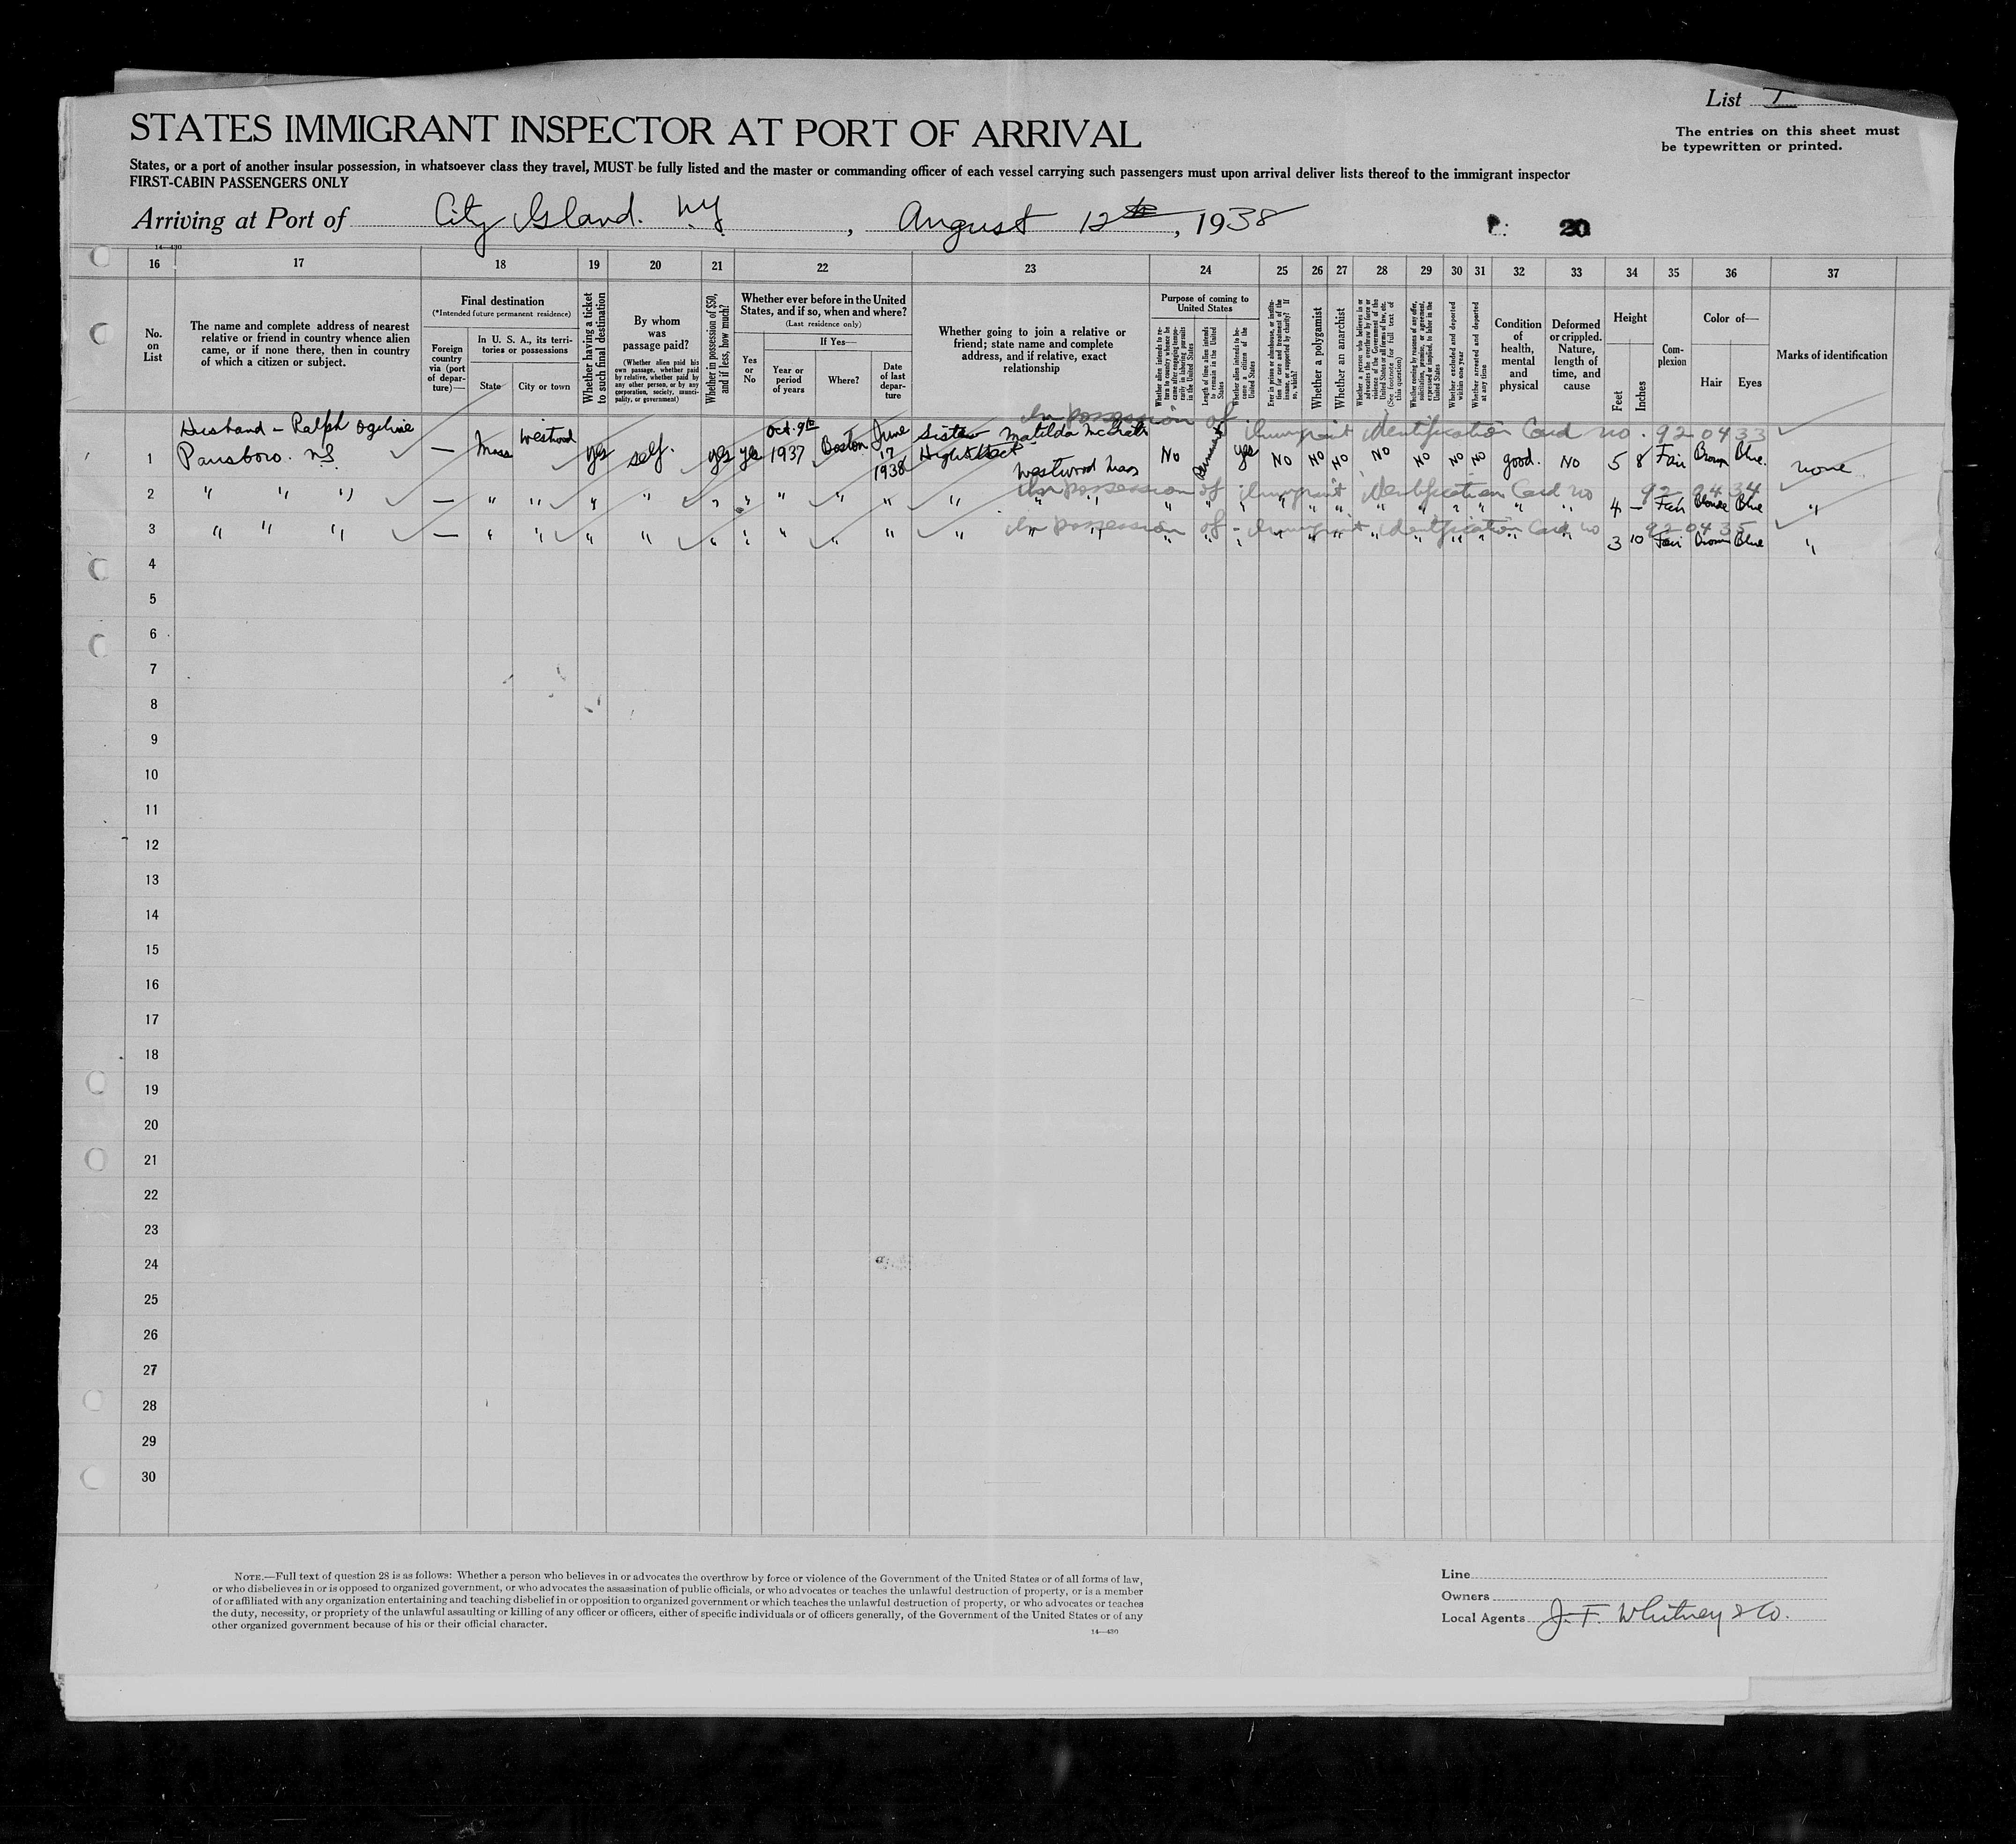 List I
STATES IMMIGRANT INSPECTOR AT PORT OF ARRIVAL
The entries on this sheet must
be typewritten or printed.
States, or a port of another insular possession, in whatsoever class they travel, MUST be fully listed and the master or commanding officer of each vessel carrying such passengers must upon arrival deliver lists thereof to the immigrant inspector
FIRST-CABIN PASSENGERS ONLY
Arriving at Port of City Island. NY, August 12th, 1938
P: 20
14—430
16 17 18 19 20 21 22 23 24 25 26 27 28 29 30 31 32 33 34 35 36 37
No. on List
The name and complete address of nearest
relative or friend in country whence alien
came, or if none there, then in country
of which a citizen or subject.
Final destination
(*Intended future permanent residence)
Foreign country via (port of departure)—
In U. S. A., its territories or possessions
State
City or town
Whether having a ticket to such final destination
By whom was passage paid?
(Whether alien paid his own passage, whether paid by relative, whether paid by any other person, or by any corporation, society, municipality, or government)
Whether in possession of $50, and if less, how much?
Whether ever before in the United
States, and if so, when and where?
(Last residence only)
Yes or No
If Yes—
Year or period of years
Where?
Date of last departure
Whether going to join a relative or
friend; state name and complete
address, and if relative, exact
relationship
Purpose of coming to United States
Length of time alien intends to remain in the United States
Whether alien intends to become a citizen of the United States
Whether a polygamist
Whether an anarchist
Whether excluded and deported within one year
Whether arrested and deported at any time
Condition of health, mental and physical
Deformed or crippled. Nature, length of time, and cause
Height
Feet
Inches
Complexion
Color of—
Hair
Eyes
Marks of identification
In possession of Immigrant Identification Card no. 920433
Husband - Ralph Ogilvie
1 Parrsboro. NS. — Mass Westwood yes self. yes yes Oct. 9th 1937 Boston June 17 1938 Sister Matilda McGrath High Street Westwood Mass No Permanent yes No No No No No No No good. No 5 8 Fair Brown Blue. none
In possession of Immigrant Identification Card no 920434
2 " " " — " " " " " " " " " " " " " " " " " " " " " " " " 4 — Fair Blonde Blue "
In possession of Immigrant Identification Card no 920435
3 " " " — " " " " " " " " " " " " " " " " " " " " " " " " 3 10 Fair Brown Blue "
4
5
6
7
8
9
10
11
12
13
14
15
16
17
18
19
20
21
22
23
24
25
26
27
28
29
30
NOTE.—Full text of question 28 is as follows: Whether a person who believes in or advocates the overthrow by force or violence of the Government of the United States or of all forms of law,
or who disbelieves in or is opposed to organized government, or who advocates the assassination of public officials, or who advocates or teaches the unlawful destruction of property, or is a member
of or affiliated with any organization entertaining and teaching disbelief in or opposition to organized government or which teaches the unlawful destruction of property, or who advocates or teaches
the duty, necessity, or propriety of the unlawful assaulting or killing of any officer or officers, either of specific individuals or of officers generally, of the Government of the United States or of any
other organized government because of his or their official character.
14—430
Line
Owners
Local Agents J. F. Whitney & Co.